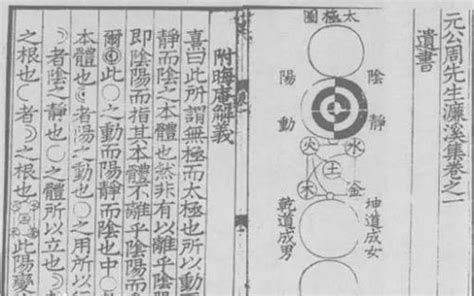 元公周先生濂溪集卷之一
遺書
太極圖
陰靜
陽動
火
水
土
木
金
坤道成女
乾道成男
附晦庵解義
熹曰此所謂無極而太極也所以動
靜而陰之本體也然非有以離乎陰
即陰陽而指其本體不雜乎陰陽而
爾此○之動而陽靜而陰也中○
本體也者陽之動也○之用所以行
者陰之靜也○之體所以立也
之根也者之根也此陽變